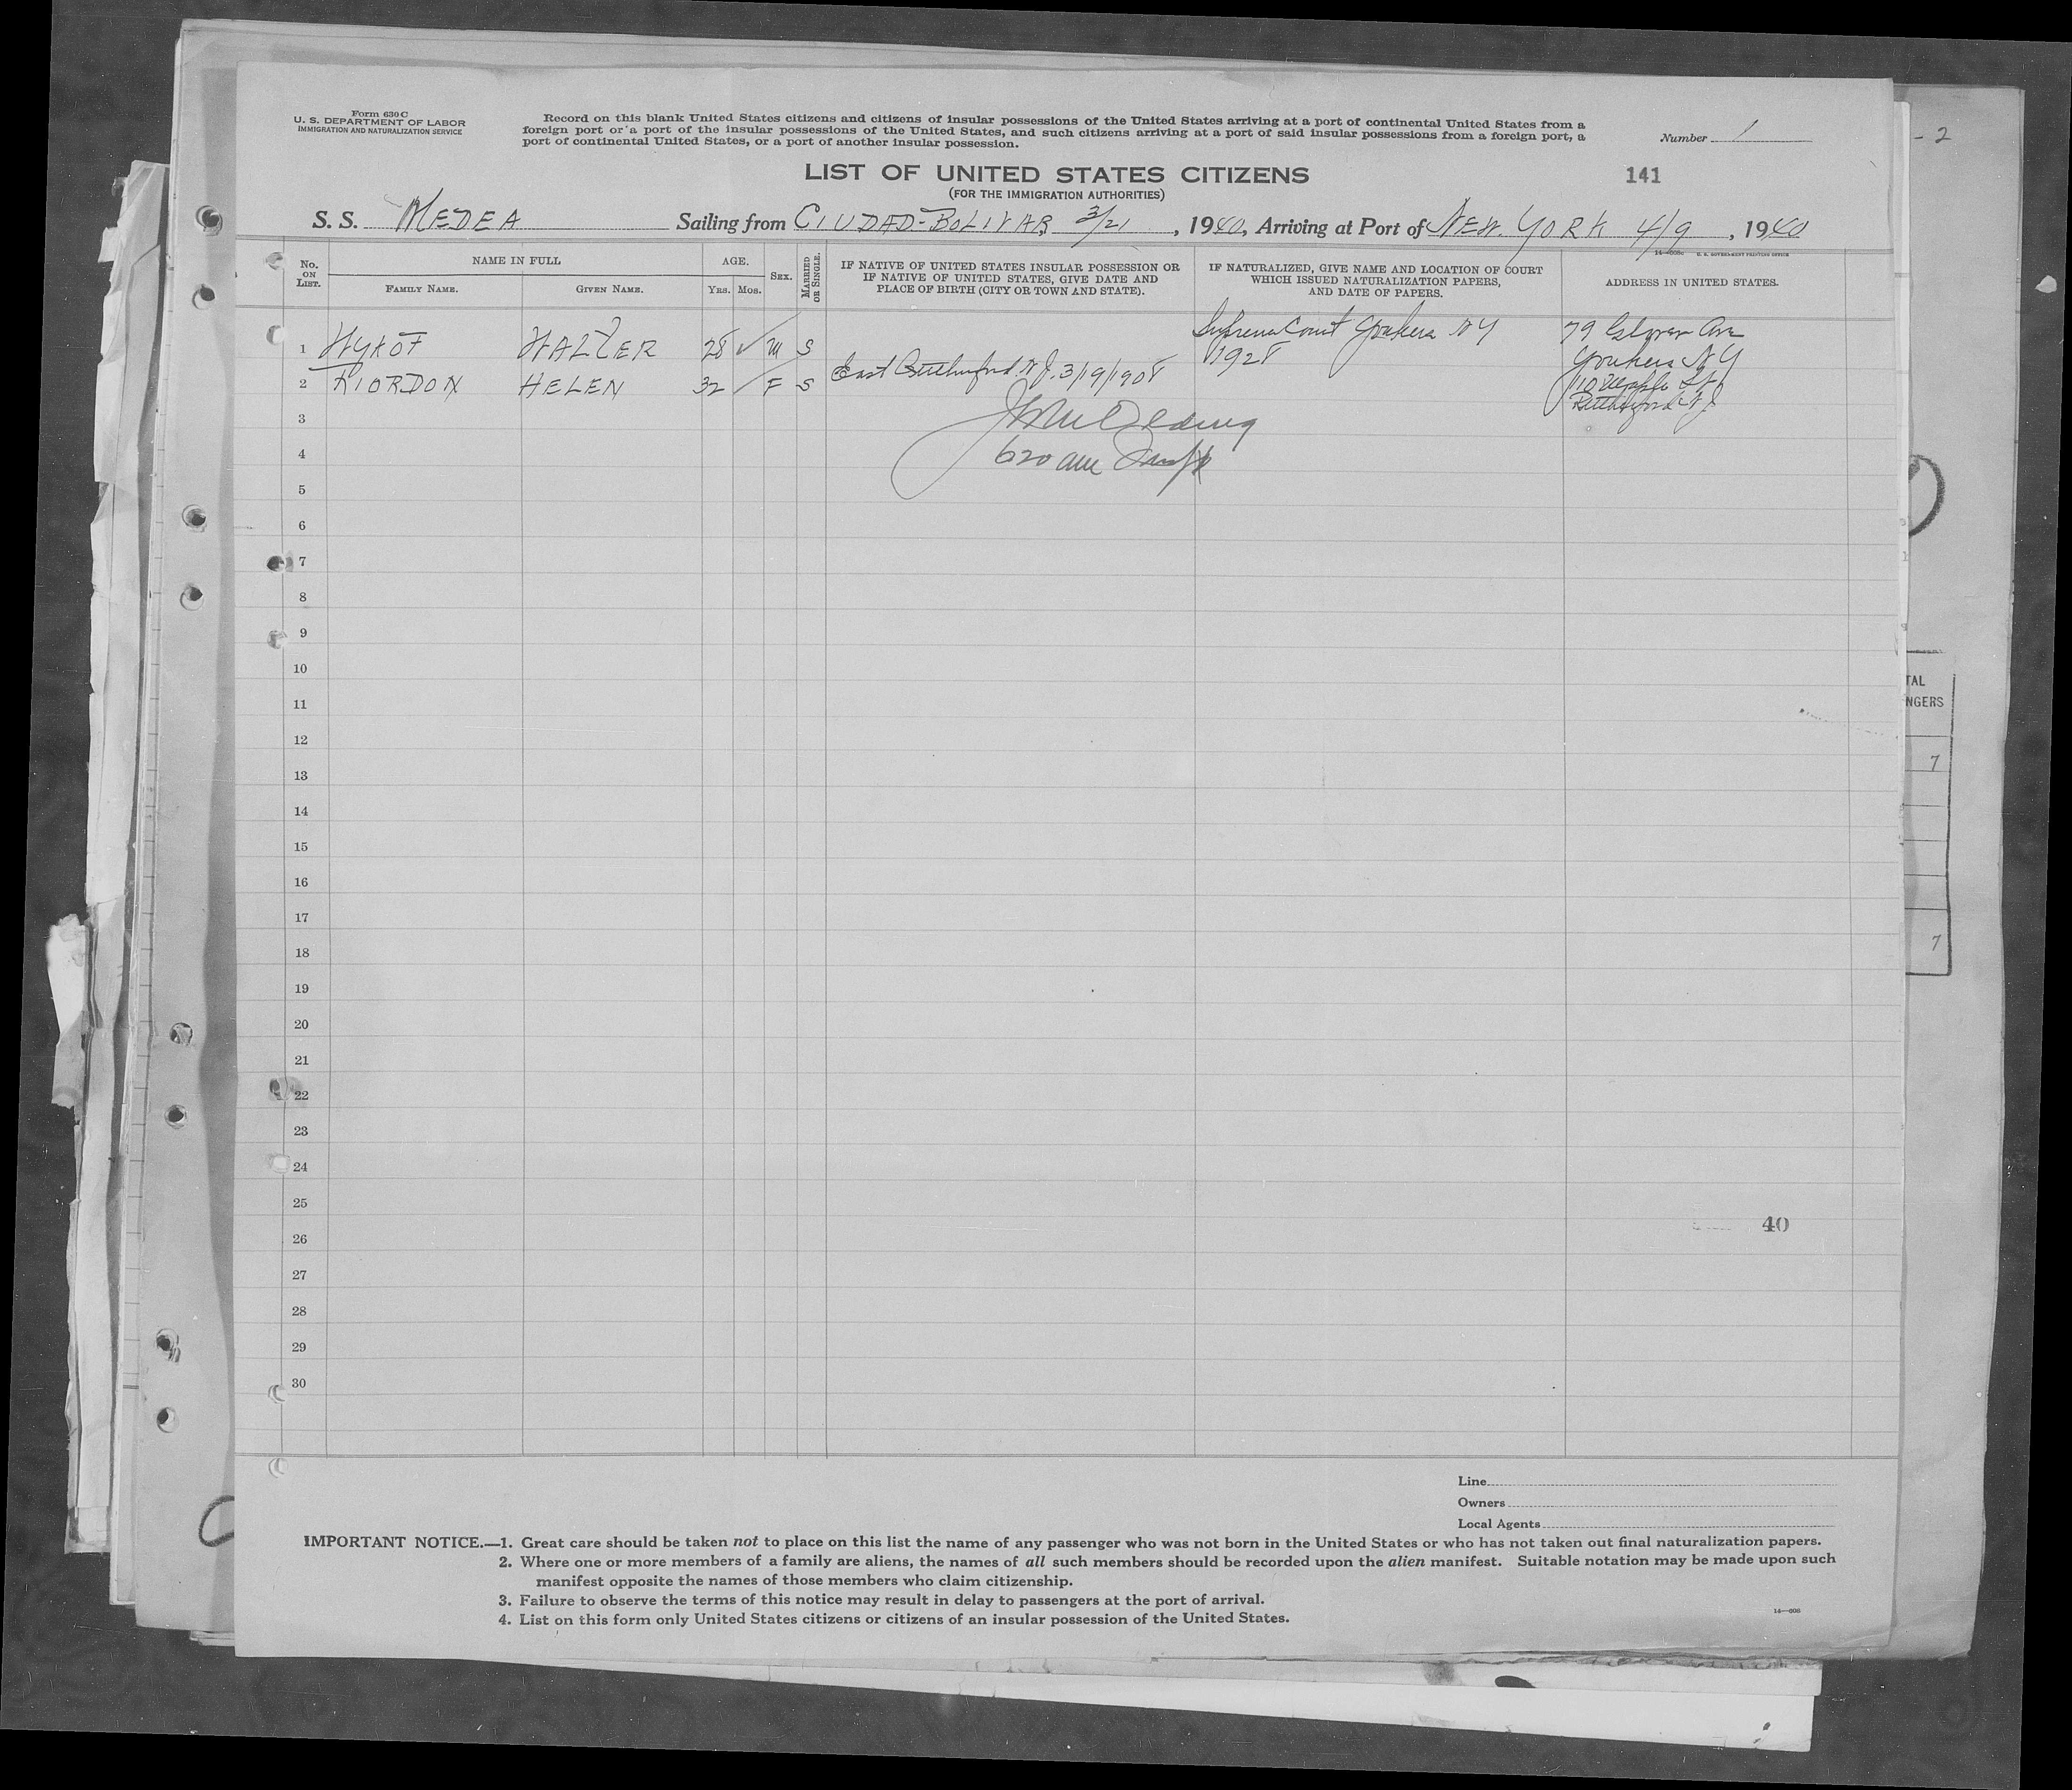 Form 630 C
U. S. DEPARTMENT OF LABOR
IMMIGRATION AND NATURALIZATION SERVICE
Record on this blank United States citizens and citizens of insular possessions of the United States arriving at a port of continental United States from a
foreign port or a port of the insular possessions of the United States, and such citizens arriving at a port of said insular possessions from a foreign port, a
port of continental United States, or a port of another insular possession.
Number 1
- 2
LIST OF UNITED STATES CITIZENS
141
(FOR THE IMMIGRATION AUTHORITIES)
S. S. MEDEA Sailing from CIUDAD-BOLIVAR 3/21, 1940, Arriving at Port of NEW. YORK 4/9, 1940
14—608c U. S. GOVERNMENT PRINTING OFFICE
No. ON LIST.
NAME IN FULL
FAMILY NAME.
GIVEN NAME.
AGE.
YRS. MOS.
SEX.
MARRIED OR SINGLE.
IF NATIVE OF UNITED STATES INSULAR POSSESSION OR
IF NATIVE OF UNITED STATES, GIVE DATE AND
PLACE OF BIRTH (CITY OR TOWN AND STATE).
IF NATURALIZED, GIVE NAME AND LOCATION OF COURT
WHICH ISSUED NATURALIZATION PAPERS,
AND DATE OF PAPERS.
ADDRESS IN UNITED STATES.
1 WYKOF WALTER 28 M S Supreme Court Yonkers NY 79 Glover Ave
1928 Yonkers NY
2 RIORDON HELEN 32 F S East Rutherford N J. 3/19/1908 110 Maple St
Rutherford N J
3
4 620 am Insp
5
6
7
8
9
10
11
12
13
14
15
16
17
18
19
20
21
22
23
24
25
40
26
27
28
29
30
TAL
NGERS
7
7
Line
Owners
Local Agents
IMPORTANT NOTICE.—1. Great care should be taken not to place on this list the name of any passenger who was not born in the United States or who has not taken out final naturalization papers.
2. Where one or more members of a family are aliens, the names of all such members should be recorded upon the alien manifest. Suitable notation may be made upon such
manifest opposite the names of those members who claim citizenship.
3. Failure to observe the terms of this notice may result in delay to passengers at the port of arrival.
4. List on this form only United States citizens or citizens of an insular possession of the United States.
14—608